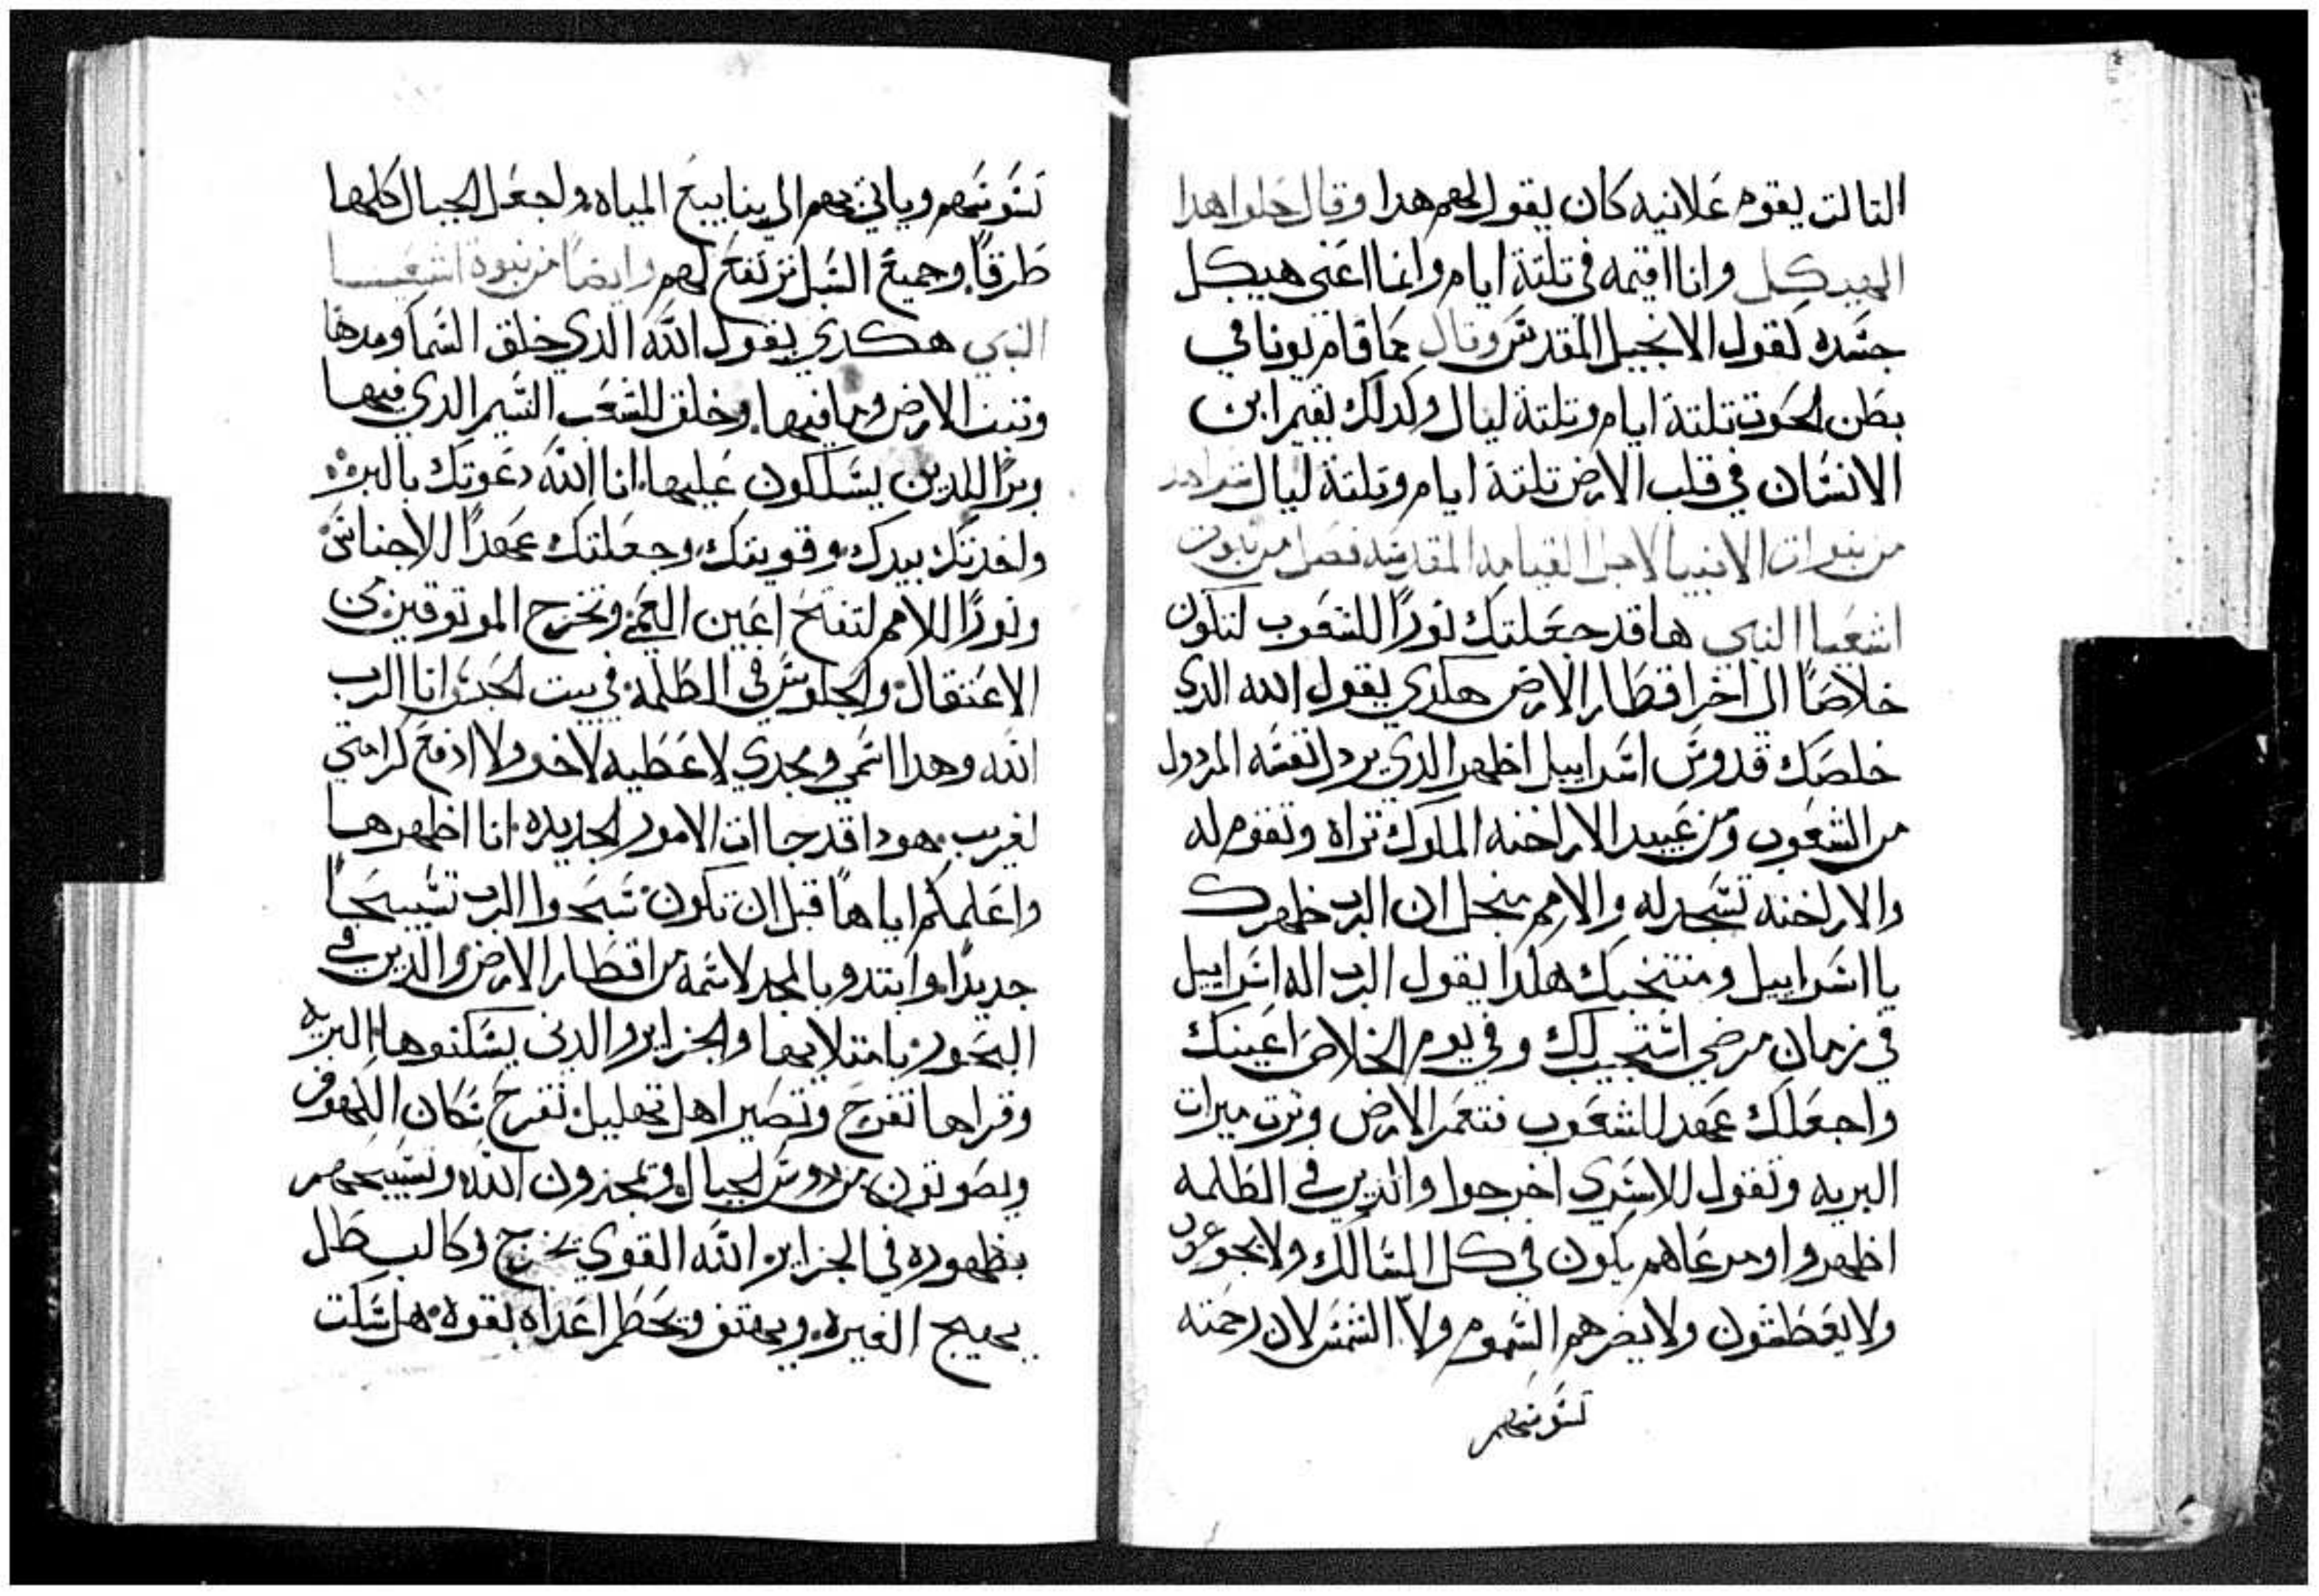 التالت يقوم علانيه كان يقول لهم هدا وقال حلوا هدا
الهيكل وانا اقيمه في تلتة ايام وانما اعني هيكل
جسده لقول الانجيل المقدس وقال كما قام يونا في
بطن الحوت تلتة ايام وتلتة ليال وكدلك يقيم ابن
الانسان في قلب الارض تلتة ايام وتلتة ليال
من نبوات الانبيا لاجل القيامه المقدسه فصل من نبوت
اشعيا النبي ها قد جعلتك نورًا للشعوب لتكون
خلاصًا الى اخر اقطار الارض هكدي يقول الله الدي
خلصك قدوس اسراييل اظهر الدي يردل نفسه المردول
من الشعوب ومن عبيد الاراخنه الملوك تراه وتقوم له
والاراخنه تسجد له والامم منجل ان الرب ظهرك
يا اسراييل ومنتخبك هكدا يقول الرب اله اسراييل
في زمان مرضي استجيب لك وفي يوم الخلاص اعينك
واجعلك عهد للشعوب فتعمر الارض وترت ميرات
البريه وتقول للاسري اخرجوا والدين في الظلمه
اظهروا ومرعاهم يكون في كل المسالك ولا يجوعون
ولا يعطشون ولا يضرهم السموم ولا الشمس لان رحمته
تسوسهم
تسوسهم وياتي بهم الي ينابيع المياه واجعل الجبال كلها
طرقًا وجميع السبل ترتفع لهم وايضًا من نبوة اشعيا
النبي هكدي يقول الله الدي خلق السما ومدها
وتبت الارض وما فيها وخلق للشعب النسيم الدي فيها
وبرًا للدين يسلكون عليها انا الله دعوتك بالبر
واخدتك بيدك وقويتك وجعلتك عهدًا للاجناس
ونورًا للامم لتفتح اعين العمي وتخرج الموتوقين من
الاعتقال والجلوس في الظلمه في بيت الحبس انا الرب
الله وهدا اسمي ومجدي لا عطيه لاخر ولا ادفع كرامتي
لغريب هودا قد جاات الامور الجديده انا اظهرها
واعلمكم اياها قبل ان تكون سبحوا الرب تسبيحًا
جديدًا وابتدوا بالمجد لاسمه من اقطار الارض والدين في
البحور بامتلايها والجزاير والدين يسكنوها البريه
وقراها تفرح وتصير اهل تهليل تفرح سكان الكهوف
ويصوتون من روس الجبال ويمجدون الله وتسبيحهم
يظهروه في الجزاير الله القوي يخرج وكالبطل
يهيج الغيره ويهتف ويحطم اعداه بقوه هل سكت